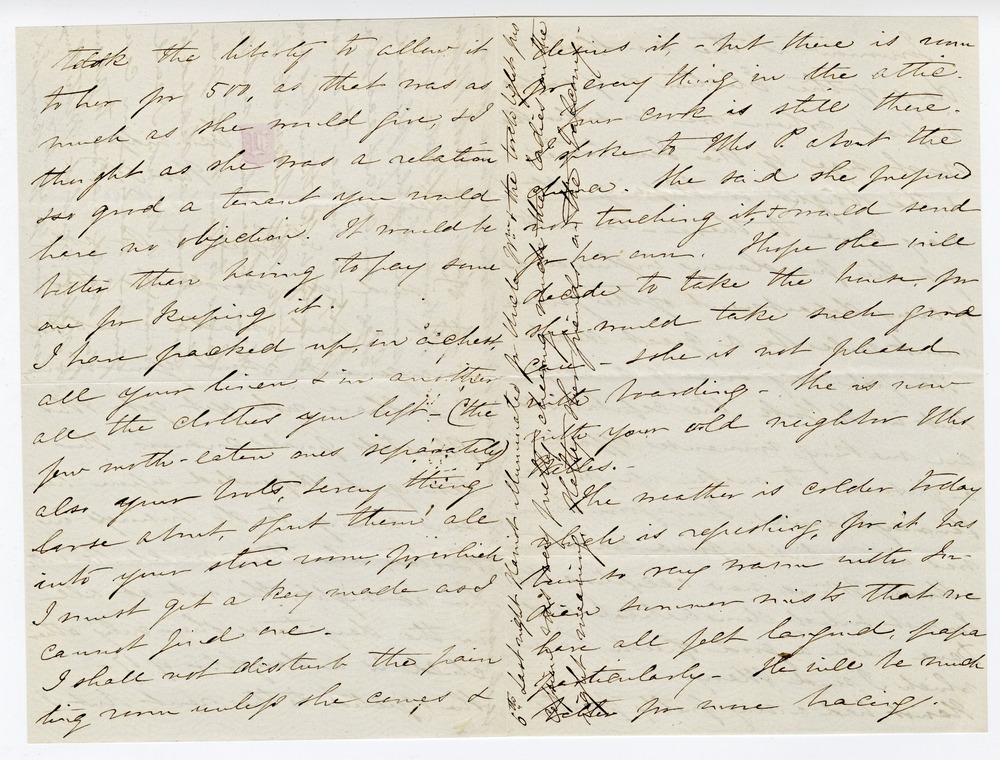 took the liberty to allow it
to her for 500, as that was as
much as she would give, & I
thought as she was a relation
& so good a tenant you would
have no objection. It would be
better than having to pay some
one for keeping it.
I have packed up, in a chest,
all your linen & in another
all the clothes you left - (the
few moth-eaten ones separately)
also your books, & every thing
loose about, & put them all
into your store room, for which
I must get a key made as I
cannot find one.
I shall not disturb the pain
ting room unless she comes &
desires it - but there is room
for every thing in the attic.
Your cook is still there.
I spoke to Mrs P. about the
She said she prefered
not touching it, & would send
for her own. Hope she will
decide to take the house, for
she would take such good
care - & she is not pleased
with boarding - She is now
with your old neighbor Mrs
The weather is colder today
which is refreshing, for it has
been so very warm with In-
dian summer mists that we
have all felt languid, papa
particularly - He will be much
better for more bracing.
6th Last night Planot illuminated for and the torch light
very pretty, the ladies in the
their friends as the